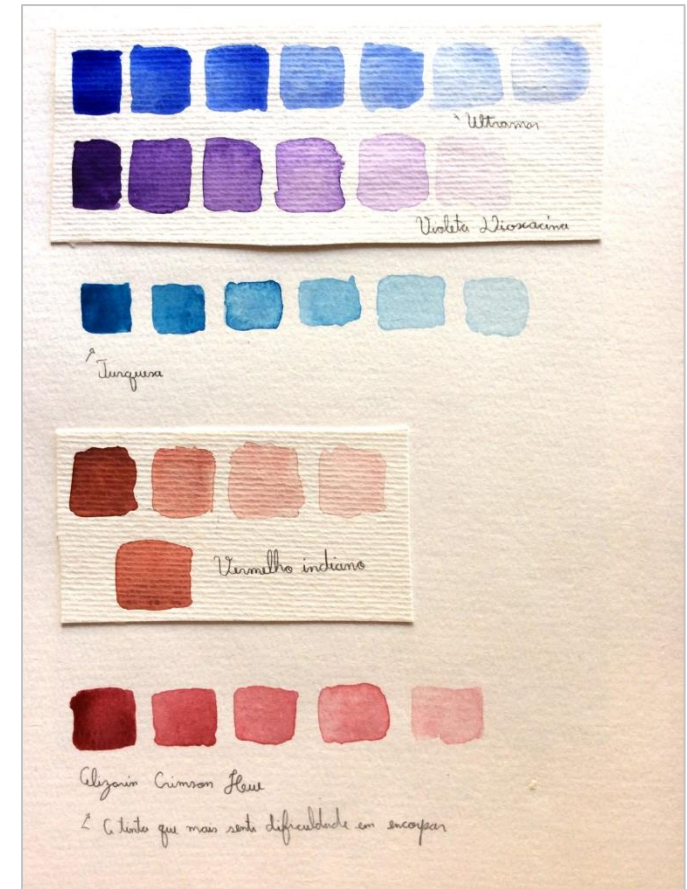 Ultramar
Violeta Dioxacina
Turquesa
Vermelho indiano
Alizarin Crimson Hue
A tinta que mais senti dificuldade em encorpar